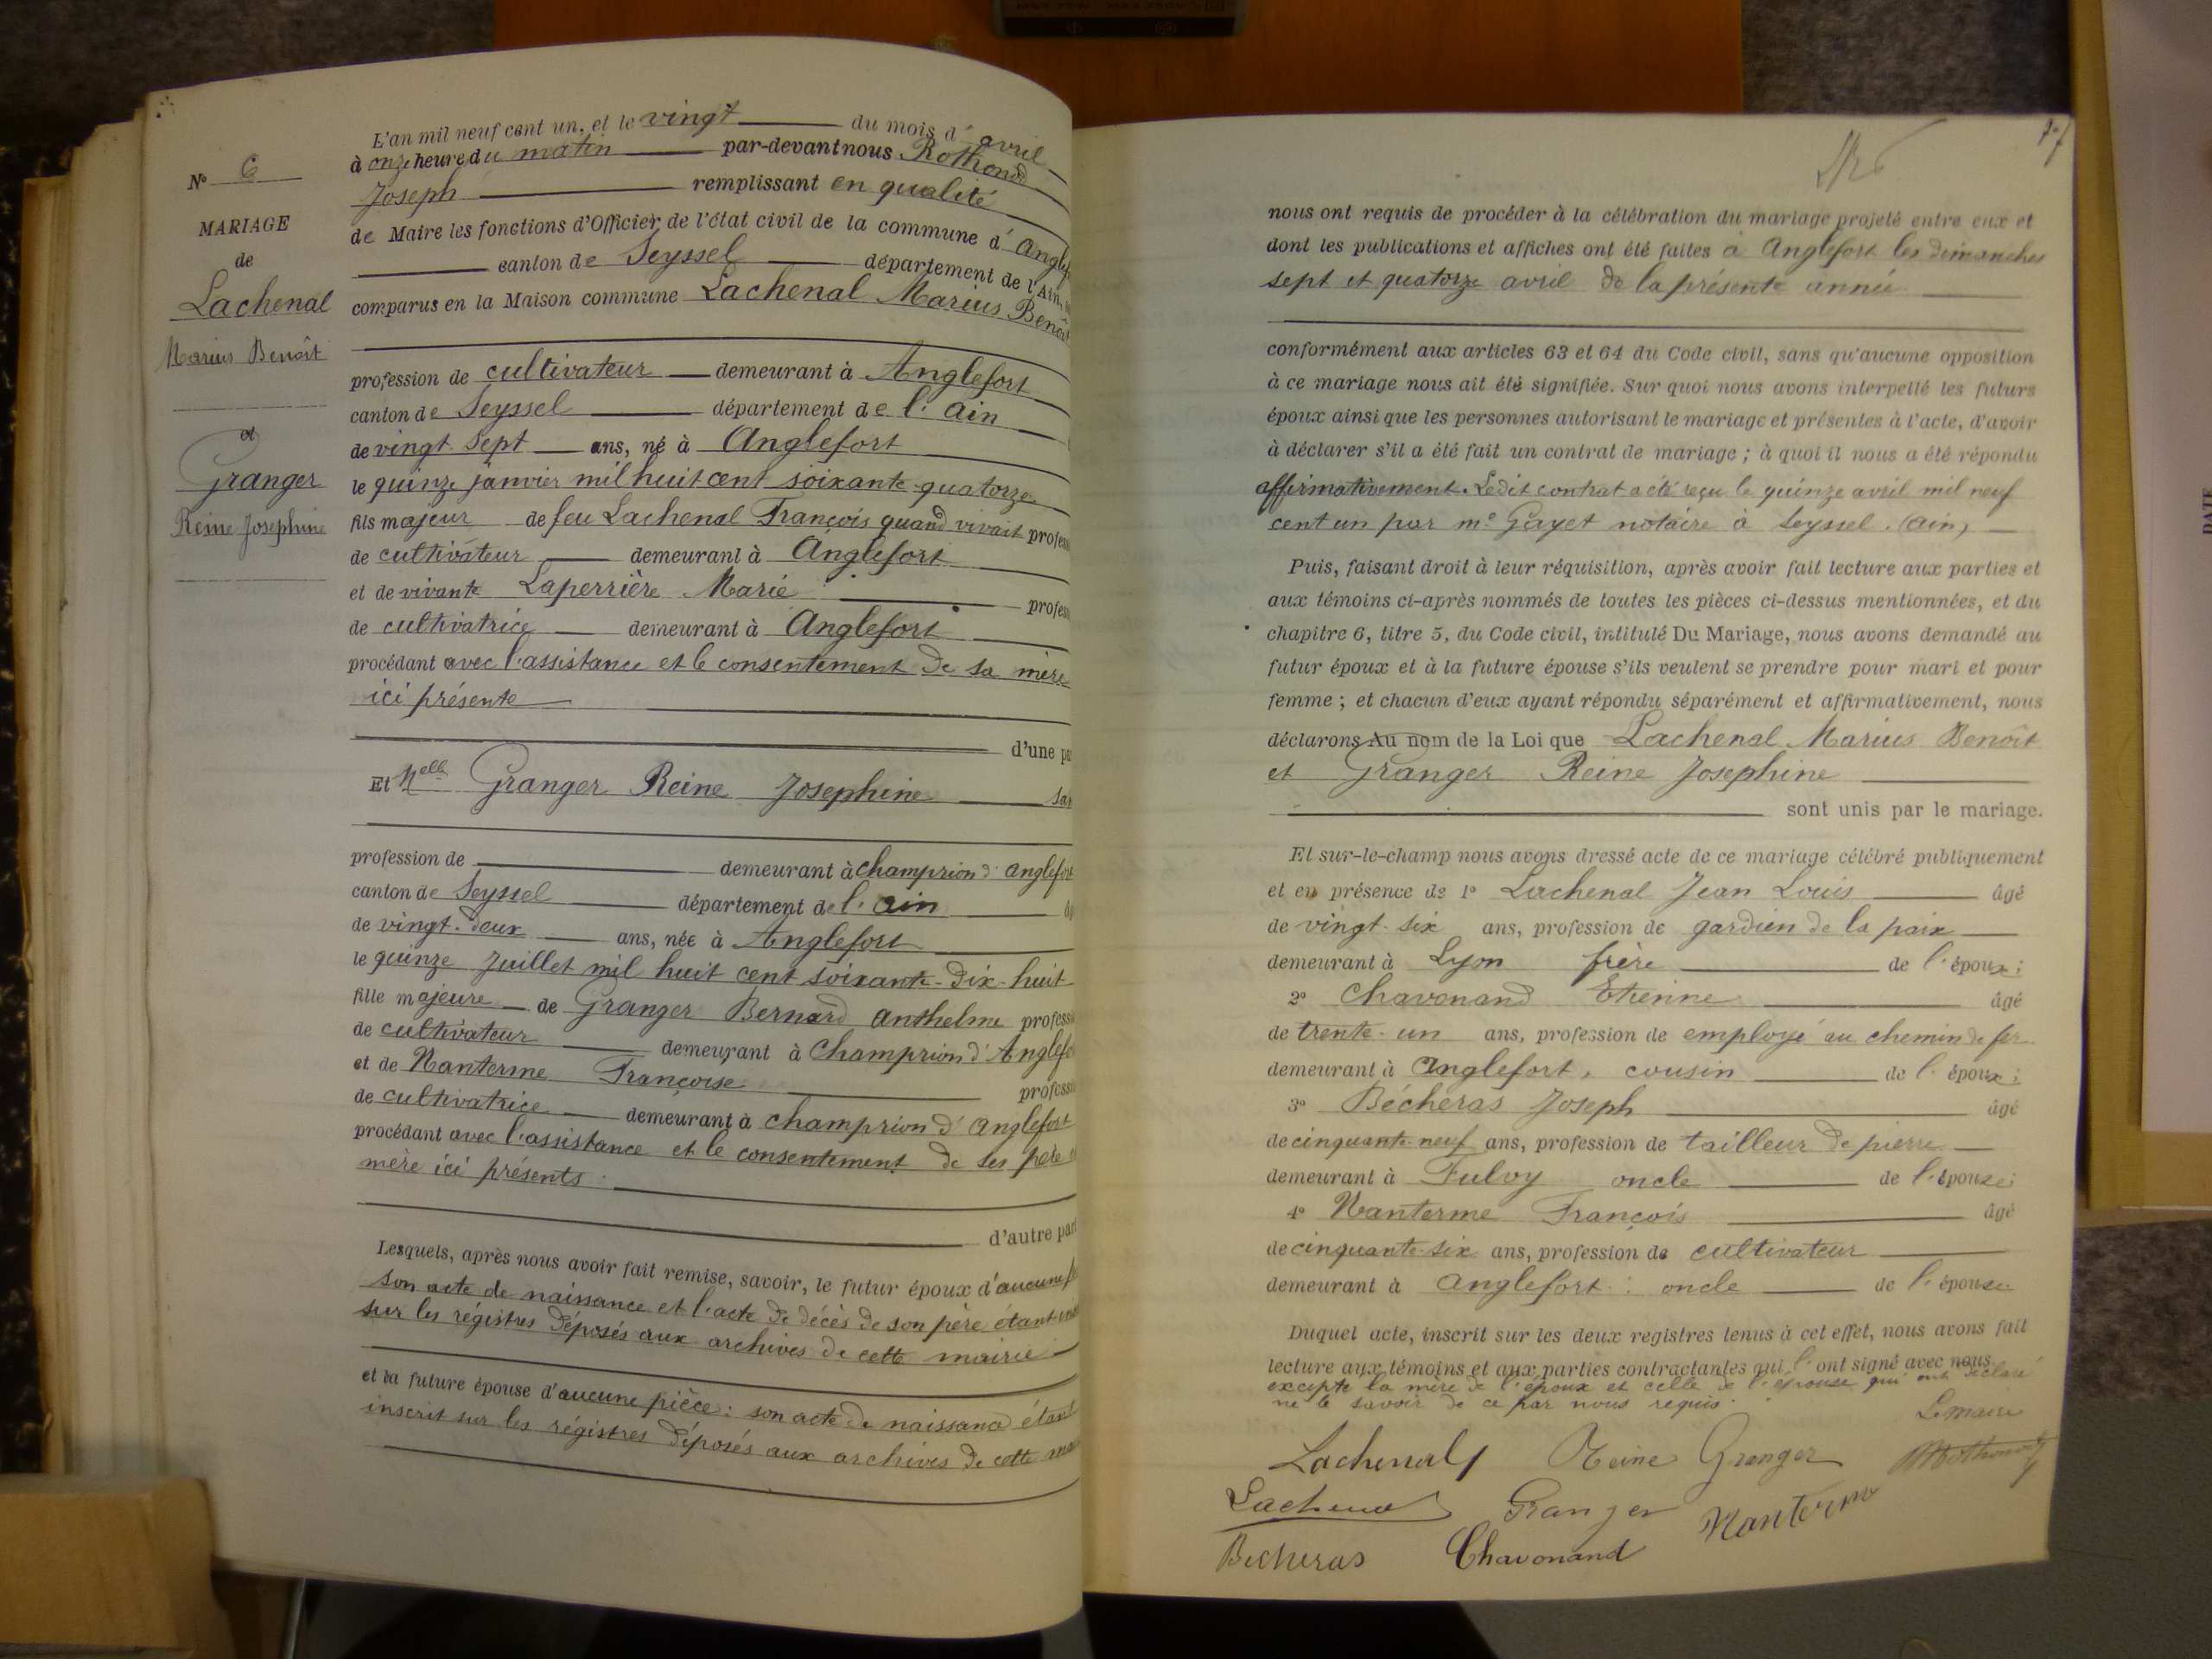 N° 6
MARIAGE
de
Lachenal
Marius Benoît
et
Granger
Reine Josephine
L'an mil neuf cent un, et le vingt du mois d'avril
à onze heure du matin par-devant nous Rothonod
Joseph remplissant en qualité
de Maire les fonctions d'Officier de l'état civil de la commune d'Anglef
canton de Seyssel département de l'Ain,
comparus en la Maison commune Lachenal Marius Benoît
profession de cultivateur demeurant à Anglefort
canton de Seyssel département de l'Ain
de vingt-sept ans, né à Anglefort
le quinze janvier mil huit cent soixante-quatorze
fils majeur de feu Lachenal François quand vivait profess
de cultivateur demeurant à Anglefort
et de vivante Laperrière Marie profess
de cultivatrice demeurant à Anglefort
procédant avec l'assistance et le consentement de sa mère
ici présente
d'une pa
Et Melle Granger Reine Josephine san
profession de demeurant à Champrion d'Anglefort
canton de Seyssel département de l'Ain
de vingt-deux ans, née à Anglefort
le quinze Juillet mil huit cent soixante-dix-huit
fille majeure de Granger Bernard Anthelme profess
de cultivateur demeurant à Champrion d'Anglefo
et de Nanterme Françoise profess
de cultivatrice demeurant à Champrion d'Anglefort
procédant avec l'assistance et le consentement de ses père
mère ici présents.
d'autre part
Lesquels, après nous avoir fait remise, savoir, le futur époux d'aucune
son acte de naissance et l'acte de décès de son père étant
sur les régistres déposés aux archives de cette mairie
et la future épouse d'aucune pièce: son acte de naissance étant
inscrit sur les régistres déposés aux archives de cette ma
nous ont requis de procéder à la célébration du mariage projeté entre eux et
dont les publications et affiches ont été faites à Anglefort les dimanches
sept et quatorze avril de la présente année
conformément aux articles 63 et 64 du Code civil, sans qu'aucune opposition
à ce mariage nous ait été signifiée. Sur quoi nous avons interpellé les futurs
époux ainsi que les personnes autorisant le mariage et présentes à l'acte, d'avoir
à déclarer s'il a été fait un contrat de mariage; à quoi il nous a été répondu
affirmativement. Ledit contrat a été reçu le quinze avril mil neuf
cent un par me Gayet notaire à Seyssel. (Ain)
Puis, faisant droit à leur réquisition, après avoir fait lecture aux parties et
aux témoins ci-après nommés de toutes les pièces ci-dessus mentionnées, et du
chapitre 6, titre 5, du Code civil, intitulé Du Mariage, nous avons demandé au
futur époux et à la future épouse s'ils veulent se prendre pour mari et pour
femme; et chacun d'eux ayant répondu séparément et affirmativement, nous
déclarons Au nom de la Loi que Lachenal Marius Benoît
et Granger Reine Josephine
sont unis par le mariage.
Et sur-le-champ nous avons dressé acte de ce mariage célébré publiquement
et en présence de 1° Lachenal Jean Louis âgé
de vingt-six ans, profession de gardien de la paix
demeurant à Lyon frère de l'époux;
2° Chavonand Etienne âgé
de trente-un ans, profession de employé au chemin de fer
demeurant à Anglefort, cousin de l'époux;
3° Bécheras Joseph âgé
de cinquante-neuf ans, profession de tailleur de pierre
demeurant à Fulvy oncle de l'épouse;
4° Nanterme François âgé
de cinquante-six ans, profession de cultivateur
demeurant à Anglefort: oncle de l'épouse
Duquel acte, inscrit sur les deux registres tenus à cet effet, nous avons fait
lecture aux témoins et aux parties contractantes qui l'ont signé avec nous
excepté la mère de l'époux et celle de l'épouse qui ont déclaré
ne le savoir de ce par nous requis.
Le maire
Lachenal Reine Granger JRothonod
Lachenal Granger Nanterme
Becheras Chavonand
DATE